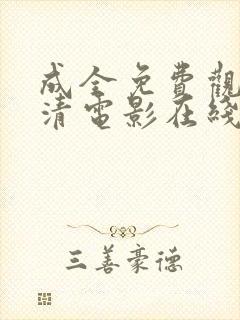 成全免費觀
清電影在綫
三善豪德